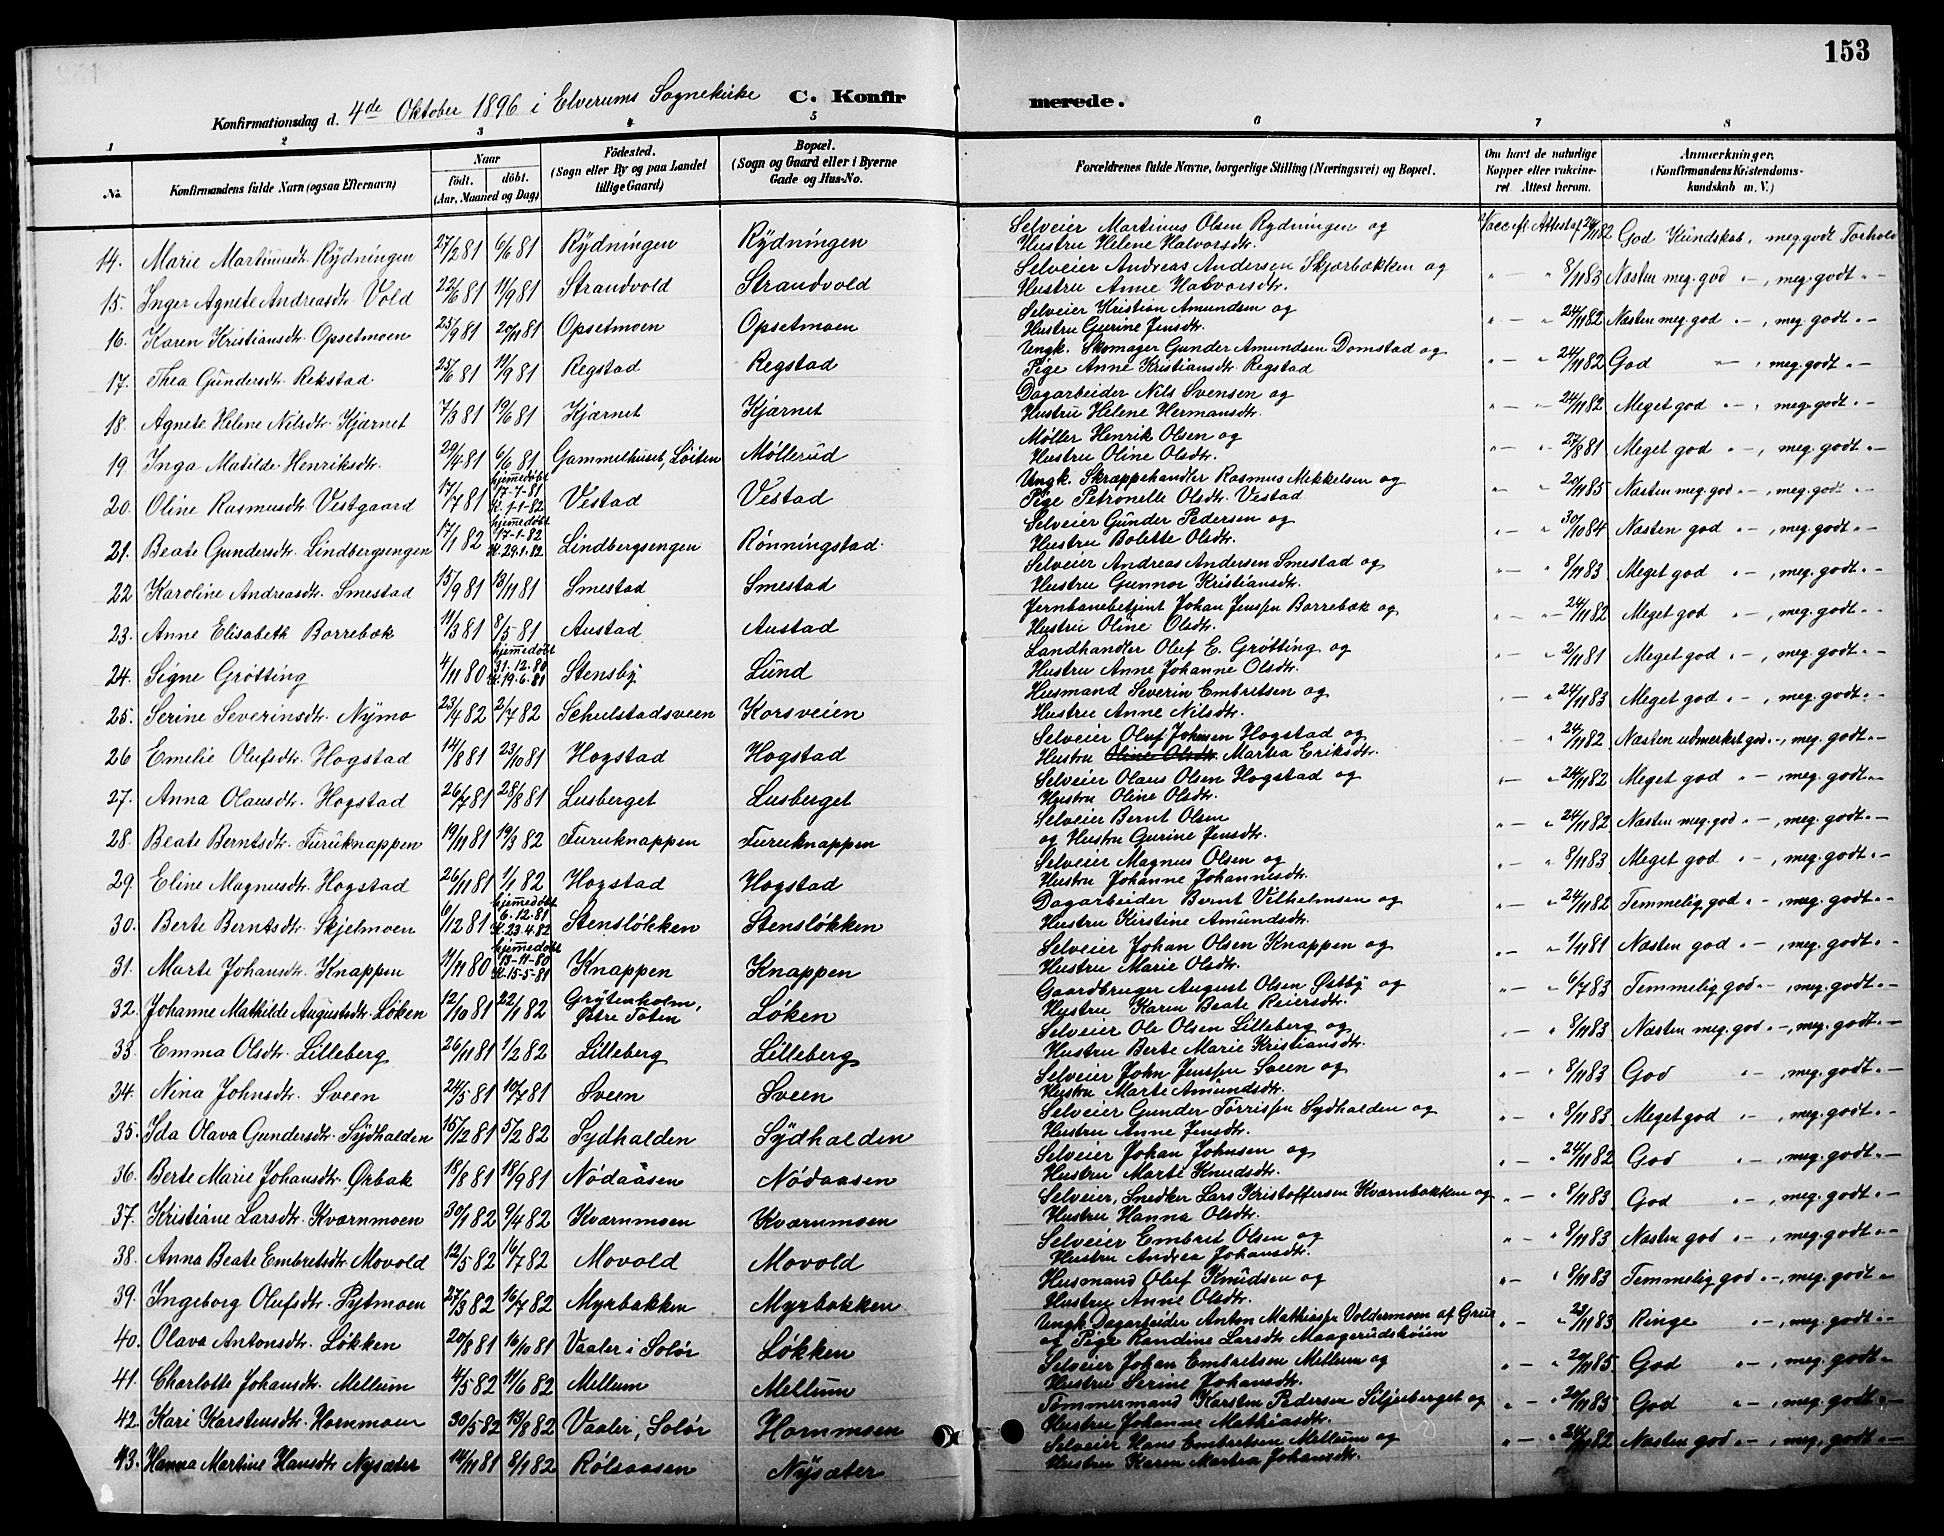 153
Konfirmationsdag d. 4de Oktober 1896 i Elverums Sognekirke C. Konfirmerede.
1 2 3 4 5 6 7 8
No. Konfirmandens fulde Navn (ogsaa Efternavn) Naar født. døbt. (Aar, Maaned og Dag) Fødested. (Sogn eller By og paa Landet tillige Gaard) Bopæl. (Sogn og Gaard eller i Byerne Gade og Hus-No. Forældrenes fulde Navne, borgerlige Stilling (Næringsvei) og Bopæl. Om havt de naturlige Kopper eller vaccineret. Attest herom. Anmærkninger. (Konfirmandens Kristendomskundskab m. V.)
14. Marie Martinusdtr. Rydningen 27/2 81 6/6 81 Rydningen Rydningen Selveier Martinus Olsen Rydningen og Hustru Helene Halvorsdtr. Vacc. ift. Attest af 24/11 82 God Kundskab, meg. godt Forhold
15. Inger Agnete Andreasdtr. Vold 22/6 81 11/9 81 Strandvold Strandvold Selveier Andreas Andersen Skjærbækken og Hustru Anne Halvorsdtr. " — " 8/11 83 Næsten meg. god " —, meg. godt " —
16. Karen Kristiansdtr. Opsetmoen 25/9 81 20/11 81 Opsetmoen Opsetmoen Selveier Kristian Amundsen og Hustru Gurine Jensdtr. " — " 24/11 82 Næsten meg. god " —, meg. godt " —
17. Thea Gundersdtr. Rekstad 25/6 81 11/9 81 Regstad Regstad Ungk. Skomager Gunder Amundsen Domstad og Pige Anne Kristiansdtr. Regstad " — " 24/11 82 God " —, meg. godt " —
18. Agnete Helene Nilsdtr. Kjærnet 7/3 81 19/6 81 Kjærnet Kjærnet Dagarbeider Nils Svensen og Hustru Helene Hermansdtr. " — " 24/11 82 Meget god " —, meg. godt " —
19 Inga Matilde Henriksdtr. 29/4 81 6/6 81 Gammelhuset, Løiten Møllerud Møller Henrik Olsen og Hustru Oline Olsdtr. " — " 27/8 81 Meget god " —, meg. godt " —
20. Oline Rasmusdtr. Vestgaard 17/7 81 hjemedøbt 17-7-81 K. 1-1-82 Vestad Vestad Ungk. Skræppehandler Rasmus Mekkelsen og Pige Petronelle Olsdtr. Vestad " — " 20/11 85 Næsten meg. god " —, meg. godt " —
21. Beate Gundersdtr. Lindbergsengen 17/1 82 hjemedøbt 17-1-82 K. 29-1-82 Lindbergsengen Rønningstad Selveier Gunder Pedersen og Hustru Bolette Olsdtr. " — " 30/10 84 Næsten god " —, meg. godt " —
22 Karoline Andreasdtr. Smestad 15/9 81 13/11 81 Smestad Smestad Selveier Andreas Andersen Smestad og Hustru Gunnor Kristiansdtr. " — " 8/11 83 Meget god " —, meg. godt " —
23. Anne Elisabeth Borrebæk 11/3 81 8/5 81 Austad Austad Jernbanebetjent Johan Jenssen Borrebæk og Hustru Oline Olsdtr. " — " 24/11 82 Meget god " —, meg. godt " —
24. Signe Grøtting 4/11 80 hjemedøbt 31-12-80 K. 19-6-81 Stensby Lund Landhandler Oluf E. Grøtting og Hustru Anne Johanne Olsdtr. " — " 2/11 81 Meget god " —, meg. godt " —
25. Serine Severinsdtr. Nymo 23/4 82 2/7 82 Schulstadsveen Korsveien Husmand Severin Embretsen og Hustru Anne Nilsdtr. " — " 24/11 83 Meget god " —, meg. godt " —
26 Emelie Olufsdtr. Hogstad 14/8 81 23/10 81 Hogstad Hogstad Selveier Oluf Johnsen Hogstad og Hustru Oline Olsdtr. Martea Eriksdtr. " — " 24/11 82 Næsten udmerket god " —, meg. godt " —
27. Anna Olausdtr. Hogstad 26/7 81 28/8 81 Lusberget Lusberget Selveier Olaus Olsen Hogstad og Hustru Oline Olsdtr. " — " 24/11 82 Meget god " —, meg. godt " —
28. Beate Berntsdtr. Furuknappen 19/11 81 19/3 82 Furuknappen Furuknappen Selveier Bernt Olsen og Hustru Gurine Jensdtr. " — " 24/11 82 Næsten meg. god " —, meg. godt " —
29. Eline Magnusdtr. Hogstad 26/11 81 1/1 82 Hogstad Hogstad Selveier Magnus Olsen og Hustru Johanne Johannesdtr. " — " 8/11 83 Meget god " —, meg. godt " —
30. Berte Berntsdtr. Skjelmoen 6/12 81 hjemedøbt 6-12-81 K. 23-4-82 Stensløkken Stensløkken Dagarbeider Bernt Vilhelmsen og Hustru Kirstine Amundsdtr. " — " 24/11 82 Temmelig god " —, meg. godt " —
31. Marte Johansdtr. Knappen 11/11 80 hjemedøbt 13-11-80 K. 15-5-81 Knappen Knappen Selveier Johan Olsen Knappen og Hustru Marie Olsdtr. " — " 1/11 81 Næsten god " —, meg. godt " —
32. Johanne Mathilde Augustsdtr. Løken 12/10 81 22/1 82 Grytenholm, Østre Toten Løken Gaardbruger August Olsen Østby og Hustru Karen Beate Reiersdtr. " — " 6/7 83 Temmelig god " —, meg. godt " —
33. Emma Olsdtr. Lilleberg 26/11 81 1/2 82 Lilleberg Lilleberg Selveier Ole Olsen Lilleberg og Hustru Berte Marie Kristiansdtr. " — " 8/11 83 Næsten meg. god " —, meg. godt " —
34. Nina Johnsdtr. Sveen 24/5 81 10/7 81 Sveen Sveen Selveier John Jenssen Sveen og Hustru Marte Amundsdtr. " — " 8/11 83 God " —, meg. godt " —
35. Ida Olava Gundersdtr. Sydhalden 15/12 81 5/2 82 Sydhalden Sydhalden Selveier Gunder Tørrissen Sydhalden og Hustru Anne Jensdtr. " — " 8/11 83 Meget god " —, meg. godt " —
36. Berte Marie Johansdtr. Ørbæk 18/8 81 18/9 81 Nødaasen Nødaasen Selveier Johan Johnsen og Hustru Marte Knudsdtr. " — " 24/11 82 God " —, meg. godt " —
37. Kristiane Larsdtr. Kværnmoen 30/1 82 9/4 82 Kværnmoen Kværnmoen Selveier, Snedker Lars Kristoffersen Kværnbækken og Hustru Hanna Olsdtr. " — " 8/11 83 God " —, meg. godt " —
38. Anna Beate Embretsdtr. Movold 12/5 82 16/7 82 Movold Movold Selveier Embret Olsen og Hustru Andrea Johansdtr. " — " 8/11 83 Næsten god " —, meg. godt " —
39. Ingeborg Olufsdtr. Pytmoen 27/3 82 16/7 82 Myrbakken Myrbakken Husmand Oluf Knudsen og Hustru Anne Olsdtr. " — " 8/11 83 Temmelig god " —, meg. godt " —
40. Olava Antonsdtr. Løkken 20/8 81 16/10 81 Vaaler i Solør Løkken Ungk. Dagarbeider Anton Mathiassen Voldermoen af Grue og Pige Randine Larsdtr. " — " 23/11 83 Ringe " —, meg. godt " —
41. Charlotte Johansdtr. Mellum 4/5 82 11/6 82 Mellum Mellum Selveier Johan Embretsen Mellum og Hustru Serine Johansdtr. " — " 20/11 85 God " —, meg. godt " —
42. Kari Karstensdtr. Hornmoen 30/5 82 13/8 82 Vaaler, Solør Hornmoen Tømmermand Karsten Pedersen Siljeberget og Hustru Johanne Mathiasdtr. " — " 20/11 85 God " —, meg. godt " —
43. Hanna Martine Hansdtr. Nysæter 14/11 81 8/1 82 Rølsaasen Nysæter Selveier Hans Embretsen Mellum og Hustru Karen Martea Johansdtr. " — " 24/11 82 Næsten god " —, meg. godt " —